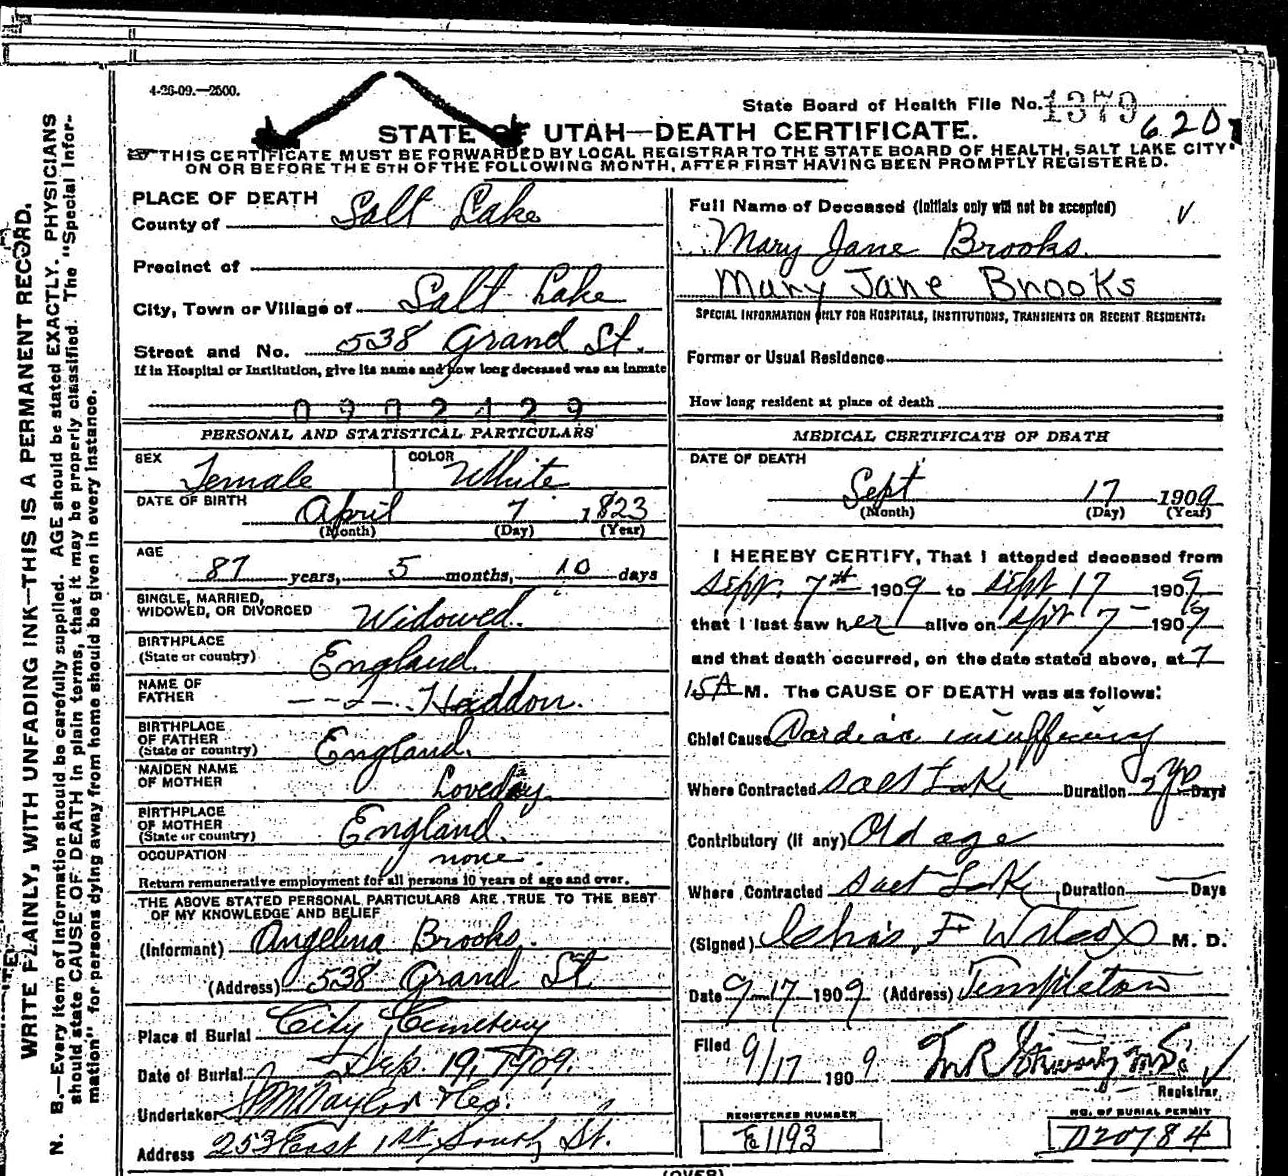 4-26-09.—2500.
State Board of Health File No. 1379
620
STATE OF UTAH—DEATH CERTIFICATE.
THIS CERTIFICATE MUST BE FORWARDED BY LOCAL REGISTRAR TO THE STATE BOARD OF HEALTH, SALT LAKE CITY
ON OR BEFORE THE 5TH OF THE FOLLOWING MONTH, AFTER FIRST HAVING BEEN PROMPTLY REGISTERED.
WRITE PLAINLY, WITH UNFADING INK—THIS IS A PERMANENT RECORD.
N. B.—Every item of information should be carefully supplied. AGE should be stated EXACTLY. PHYSICIANS
should state CAUSE OF DEATH in plain terms, that it may be properly classified. The "Special Infor-
mation" for persons dying away from home should be given in every instance.
PLACE OF DEATH
County of Salt Lake
Precinct of
City, Town or Village of Salt Lake
Street and No. 538 Grand St.
If in Hospital or Institution, give its name and how long deceased was an inmate
0902429
PERSONAL AND STATISTICAL PARTICULARS
SEX Female COLOR White
DATE OF BIRTH April 7 1823
(Month) (Day) (Year)
AGE
87 years, 5 months, 10 days
SINGLE, MARRIED,
WIDOWED, OR DIVORCED Widowed.
BIRTHPLACE
(State or country) England.
NAME OF
FATHER Haddon.
BIRTHPLACE
OF FATHER
(State or country) England.
MAIDEN NAME
OF MOTHER Loveday.
BIRTHPLACE
OF MOTHER
(State or country) England.
OCCUPATION none.
Return remunerative employment for all persons 10 years of age and over.
THE ABOVE STATED PERSONAL PARTICULARS ARE TRUE TO THE BEST
OF MY KNOWLEDGE AND BELIEF
(Informant) Angelina Brooks.
(Address) 538 Grand St
Place of Burial City Cemetery
Date of Burial Sep. 19, 1909.
Undertaker Taylor
Address 253 East 1st South St.
Full Name of Deceased (Initials only will not be accepted)
Mary Jane Brooks.
Mary Jane Brooks
SPECIAL INFORMATION ONLY FOR HOSPITALS, INSTITUTIONS, TRANSIENTS OR RECENT RESIDENTS:
Former or Usual Residence
How long resident at place of death
MEDICAL CERTIFICATE OF DEATH
DATE OF DEATH
Sept 17 1909
(Month) (Day) (Year)
I HEREBY CERTIFY, That I attended deceased from
Sept. 7th 1909 to Sept 17 1909
that I last saw her alive on Spt 7 1909
and that death occurred, on the date stated above, at 7
15 A M. The CAUSE OF DEATH was as follows:
Chief Cause Cardiac insufficiency
Where Contracted Salt Lake Duration 2 yrs Days
Contributory (if any) Old age
Where Contracted Salt Lake Duration Days
(Signed) Chas. F Wilcox M. D.
Date 9-17 1909 (Address) Templeton
Filed 9/17 1909
Registrar
REGISTERED NUMBER
E1193
NO. OF BURIAL PERMIT
D20784
(OVER)